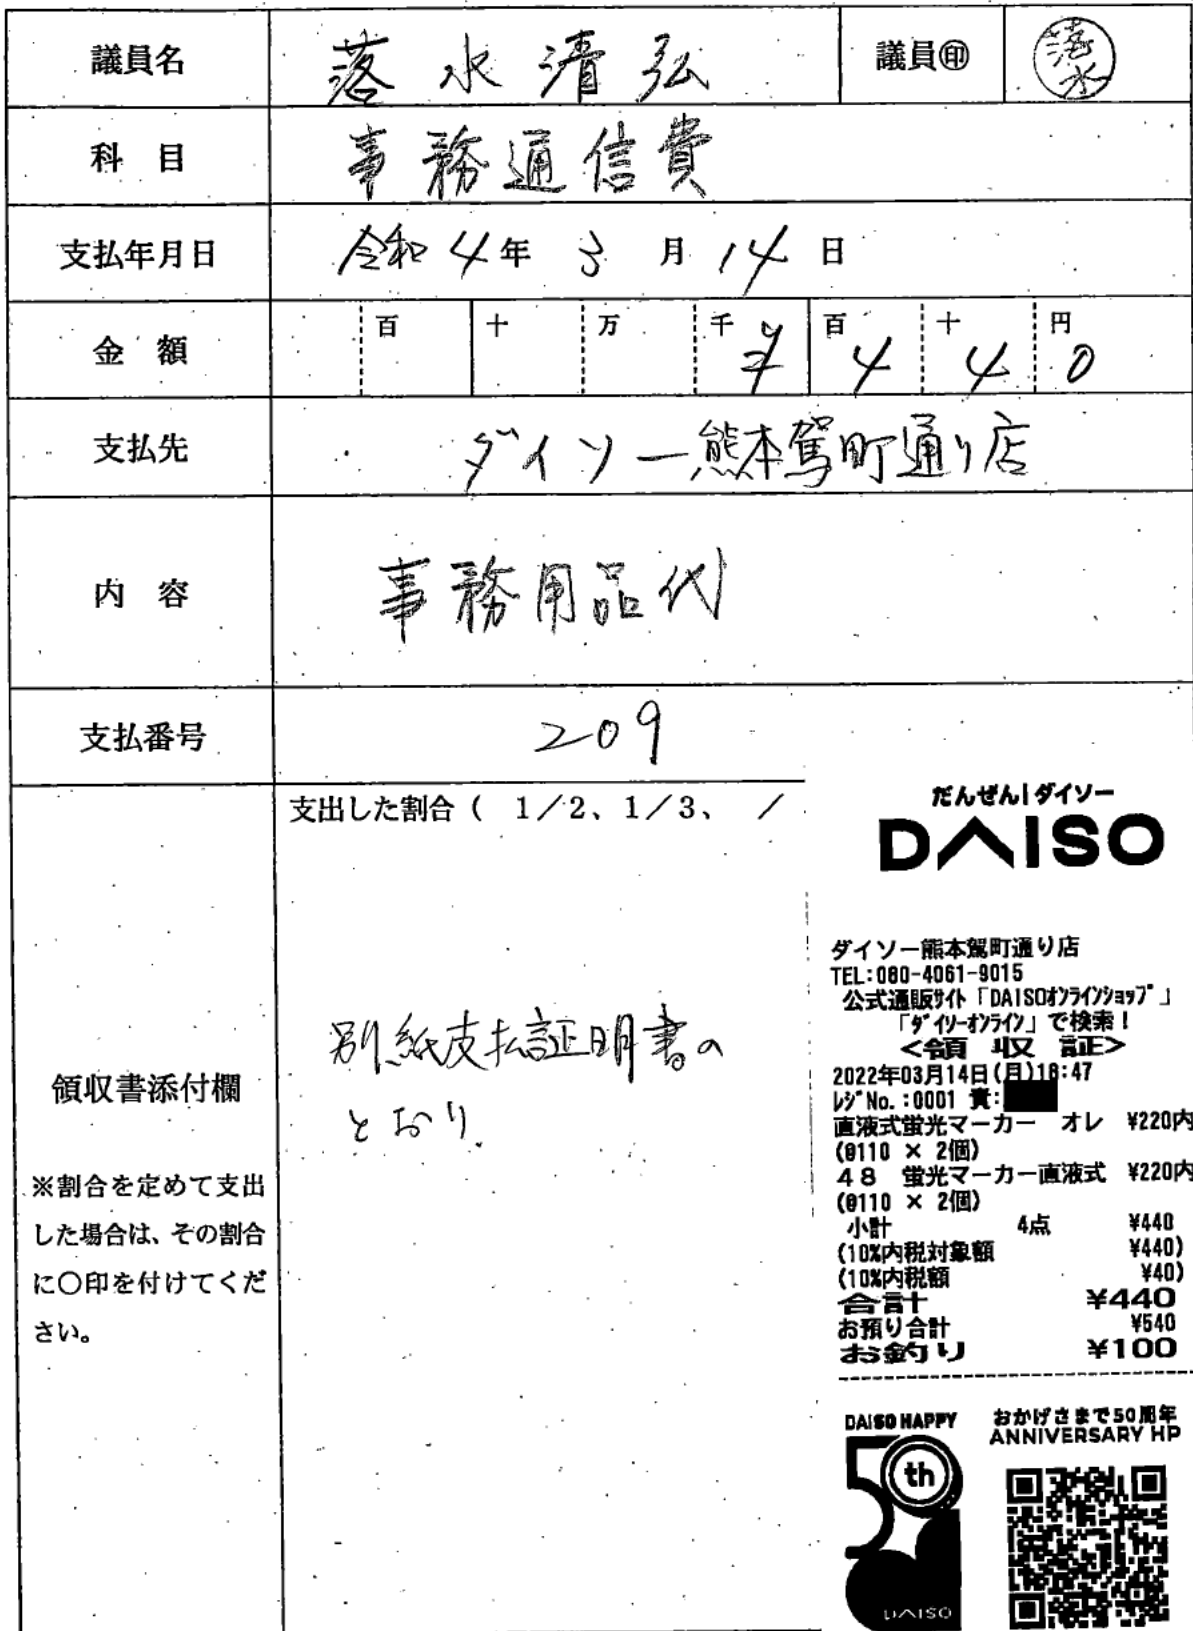 議員名 落水清弘 議員㊞ 落水
科目 事務通信費
支払年月日 令和4年3月14日
金額 百 十 万 千 百 十 円
¥ 4 4 0
支払先 ダイソー熊本駕町通り店
内容 事務用品代
支払番号 209
支出した割合( 1/2、1/3、 /
領収書添付欄
※割合を定めて支出
した場合は、その割合
に〇印を付けてくだ
さい。
別紙支払証明書の
とおり。
だんぜん!ダイソー
DAISO
ダイソー熊本駕町通り店
TEL:080-4061-9015
公式通販サイト「DAISOオンラインショップ」
「ダイソーオンライン」で検索!
<領収証>
2022年03月14日(月)18:47
レジNo.:0001 責:
直液式蛍光マーカー オレ ¥220内
(@110 × 2個)
48 蛍光マーカー直液式 ¥220内
(@110 × 2個)
小計 4点 ¥440
(10%内税対象額 ¥440)
(10%内税額 ¥40)
合計 ¥440
お預り合計 ¥540
お釣り ¥100
DAISO HAPPY
50th
DAISO
おかげさまで50周年
ANNIVERSARY HP